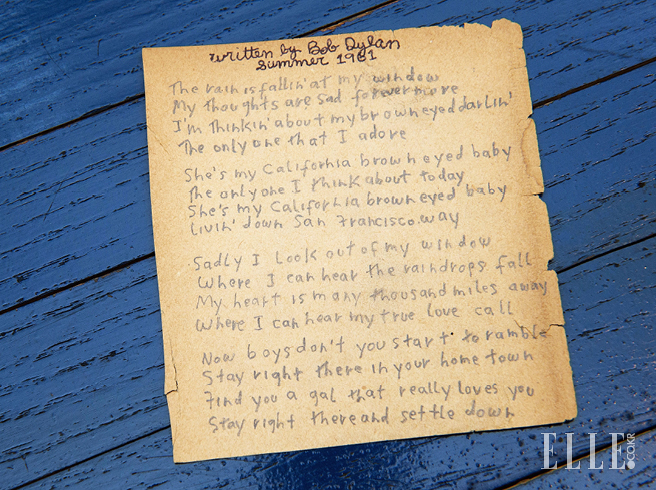 written by Bob Dylan
Summer 1961
The rain is fallin' at my window
My thoughts are sad forevermore
I'm thinkin' about my brown eyed darlin'
The only one that I adore
She's my California brown eyed baby
The only one I think about today
She's my California brown eyed baby
livin' down San Francisco way
Sadly I look out of my window
Where I can hear the raindrops fall
My heart is many thousand miles away
Where I can hear my true love call
Now boys don't you start to ramble
Stay right there in your home town
Find you a gal that really loves you
Stay right there and settle down
ELLE.CO.KR